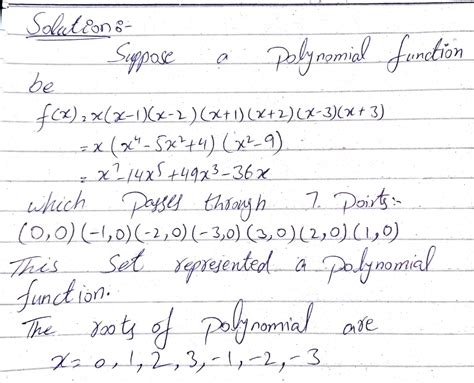 Solution:-
Suppose a polynomial function
be
f(x) = x(x-1)(x-2)(x+1)(x+2)(x-3)(x+3)
= x(x⁴-5x²+4)(x²-9)
= x⁷-14x⁵+49x³-36x
which passes through 7. Points:-
(0,0)(-1,0)(-2,0)(-3,0)(3,0)(2,0)(1,0)
This set represented a polynomial
function.
The roots of polynomial are
x=0,1,2,3,-1,-2,-3